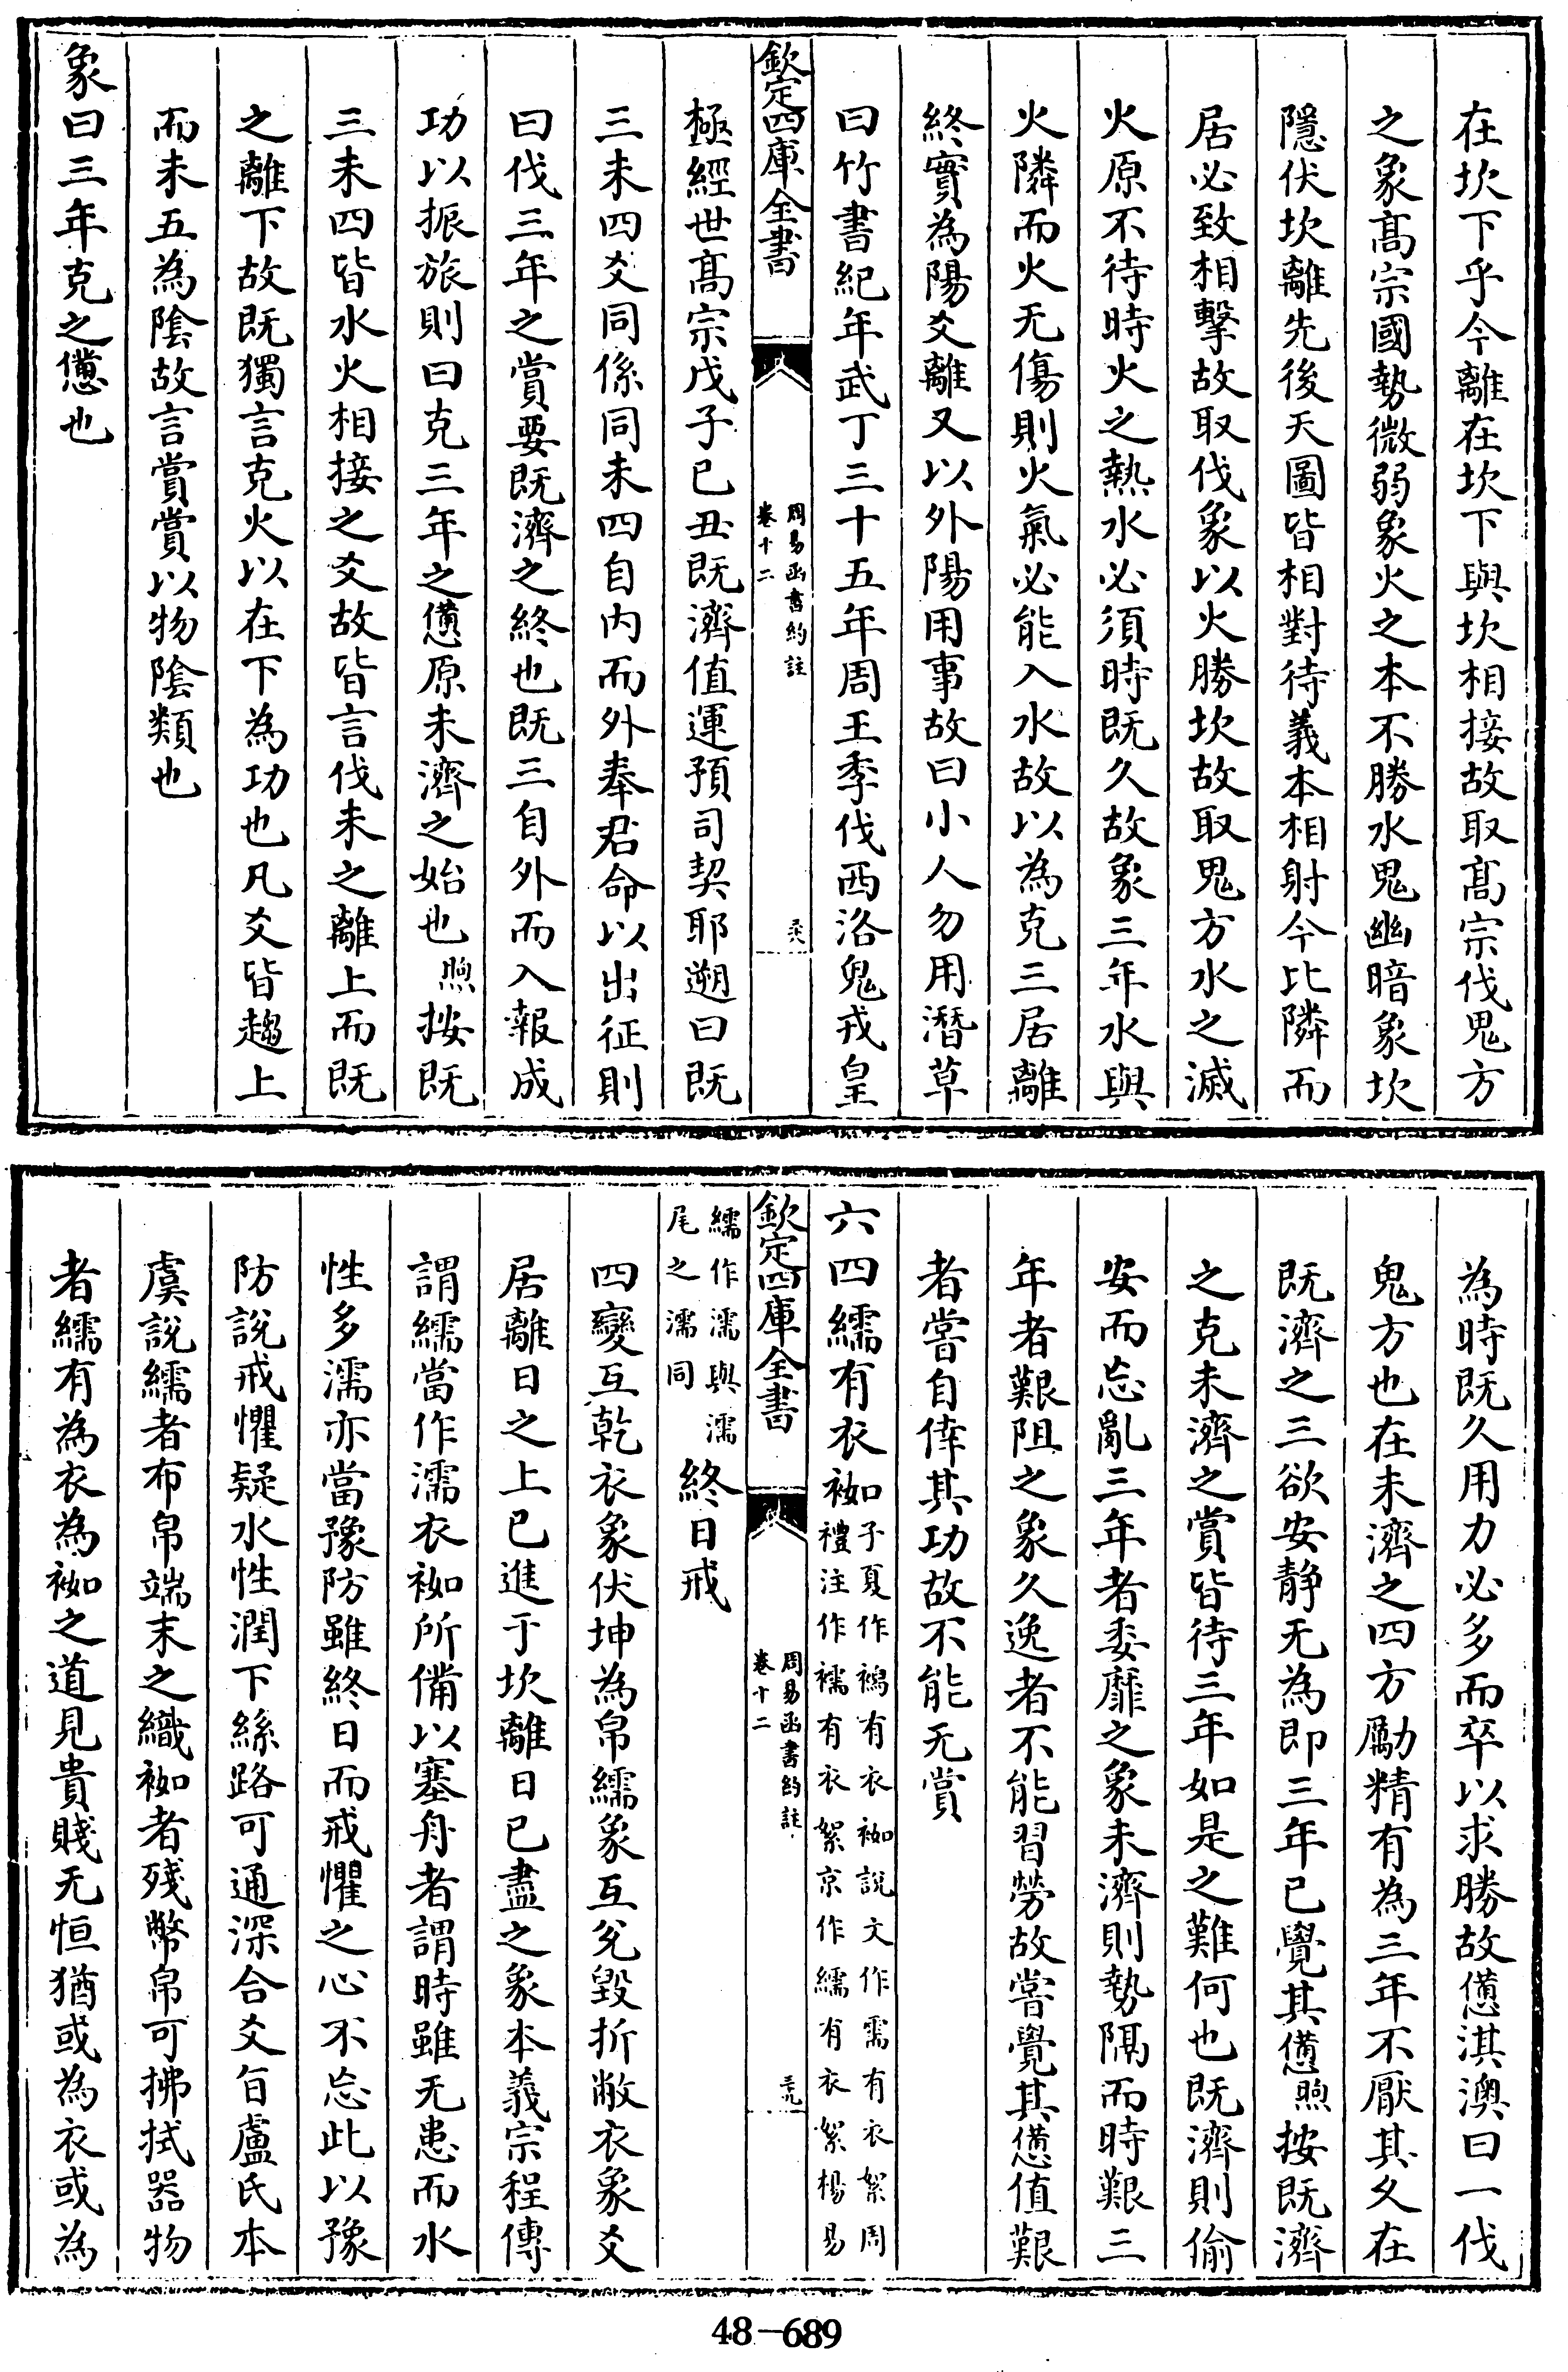 在坎下乎今離在坎下與坎相接故取髙宗伐鬼方
之象髙宗國勢微弱象火之本不勝水鬼幽暗象坎
隱伏坎離先後天圖皆相對待義本相射今比隣而
居必致相擊故取伐象以火勝坎故取鬼方水之滅
火原不待時火之熱水必須時既久故象三年水與
火隣而火无傷則火氣必能入水故以為克三居離
終實為陽爻離又以外陽用事故曰小人勿用潛草
曰竹書紀年武丁三十五年周王季伐西洛鬼戎皇
欽定四庫全書
周易函書約註
卷十二
極經世髙宗戊子已丑既濟值運預司契耶遡曰既
三未四爻同係同未四自内而外奉君命以出征則
曰伐三年之賞要既濟之終也既三自外而入報成
功以振旅則曰克三年之憊原未濟之始也煦按既
三未四皆水火相接之爻故皆言伐未之離上而既
之離下故既獨言克火以在下為功也凡爻皆趨上
而未五為陰故言賞賞以物陰類也
象曰三年克之憊也
為時既久用力必多而卒以求勝故憊淇澳曰一伐
鬼方也在未濟之四方勵精有為三年不厭其久在
既濟之三欲安静无為即三年已覺其憊煦按既濟
之克未濟之賞皆待三年如是之難何也既濟則偷
安而忘亂三年者委靡之象未濟則勢隔而時艱三
年者艱阻之象久逸者不能習勞故嘗覺其憊值艱
者嘗自倖其功故不能无賞
六四繻有衣袽子夏作襦有衣袽説文作需有衣絮周
禮注作襦有衣絮京作繻有衣絮楊易
欽定四庫全書
周易函書約註
卷十二
三九
繻作濡與濡
尾之濡同終日戒
四變互乾衣象伏坤為帛繻象互兌毀折敝衣象爻
居離日之上已進于坎離日已盡之象本義宗程傳
謂繻當作濡衣袽所備以塞舟者謂時雖无患而水
性多濡亦當豫防雖終日而戒懼之心不忘此以豫
防説戒懼疑水性潤下絲路可通深合爻旨盧氏本
虞説繻者布帛端末之織袽者殘幣帛可拂拭器物
者繻有為衣為袽之道見貴賤无恒猶或為衣或為
48-689